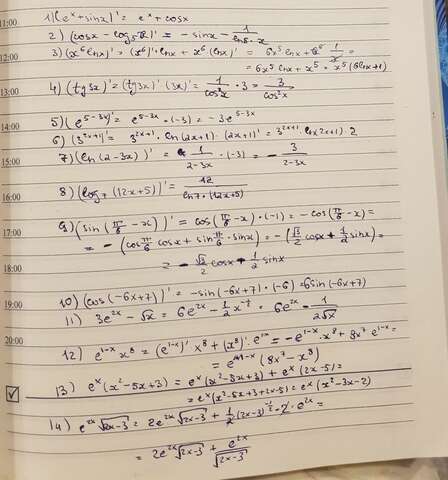 11:00
1) (e^x + sinx)' = e^x + cosx
2) (cosx - log₅x)' = -sinx - 1/(ln5·x)
12:00
3) (x⁶ lnx)' = (x⁶)' · lnx + x⁶ (lnx)' = 6x⁵ lnx + x⁶ · 1/x =
= 6x⁵ lnx + x⁵ = x⁵(6lnx+1)
13:00
4) (tg3x)' = (tg3x)' (3x)' = 1/cos²x · 3 = 3/cos²x
5) (e^(5-3x))' = e^(5-3x) · (-3) = -3e^(5-3x)
14:00
6) (3^(2x+1))' = 3^(2x+1) · ln(2x+1) · (2x+1)' = 3^(2x+1) · ln2x+1 · 2
15:00
7) (ln(2-3x))' = 1/(2-3x) · (-3) = - 3/(2-3x)
16:00
8) (log₇(12x+5))' = 12/(ln7·(12x+5))
17:00
9) (sin(π/6 - x))' = cos(π/6 - x) · (-1) = -cos(π/6 - x) =
= -(cos π/6 cosx + sin π/6 · sinx) = -(√3/2 cosx + 1/2 sinx) =
18:00
= -√3/2 cosx + 1/2 sinx
19:00
10) (cos(-6x+7))' = -sin(-6x+7) · (-6) = 6sin(-6x+7)
11) 3e^(2x) - √x = 6e^(2x) - 1/2 x^(-1/2) = 6e^(2x) - 1/(2√x)
20:00
12) e^(1-x) x⁸ = (e^(1-x))' x⁸ + (x⁸)' · e^(1-x) = -e^(1-x) · x⁸ + 8x⁷ e^(1-x) =
= e^(1-x) (8x⁷ - x⁸)
13) e^x (x²-5x+3) = e^x (x²-5x+3) + e^x (2x-5) =
= e^x (x²-5x+3+2x-5) = e^x (x²-3x-2)
14) e^(2x) √(2x-3) = 2e^(2x) √(2x-3) + 1/2 (2x-3)^(-1/2) · 2 · e^(2x) =
= 2e^(2x) √(2x-3) + e^(2x)/√(2x-3)